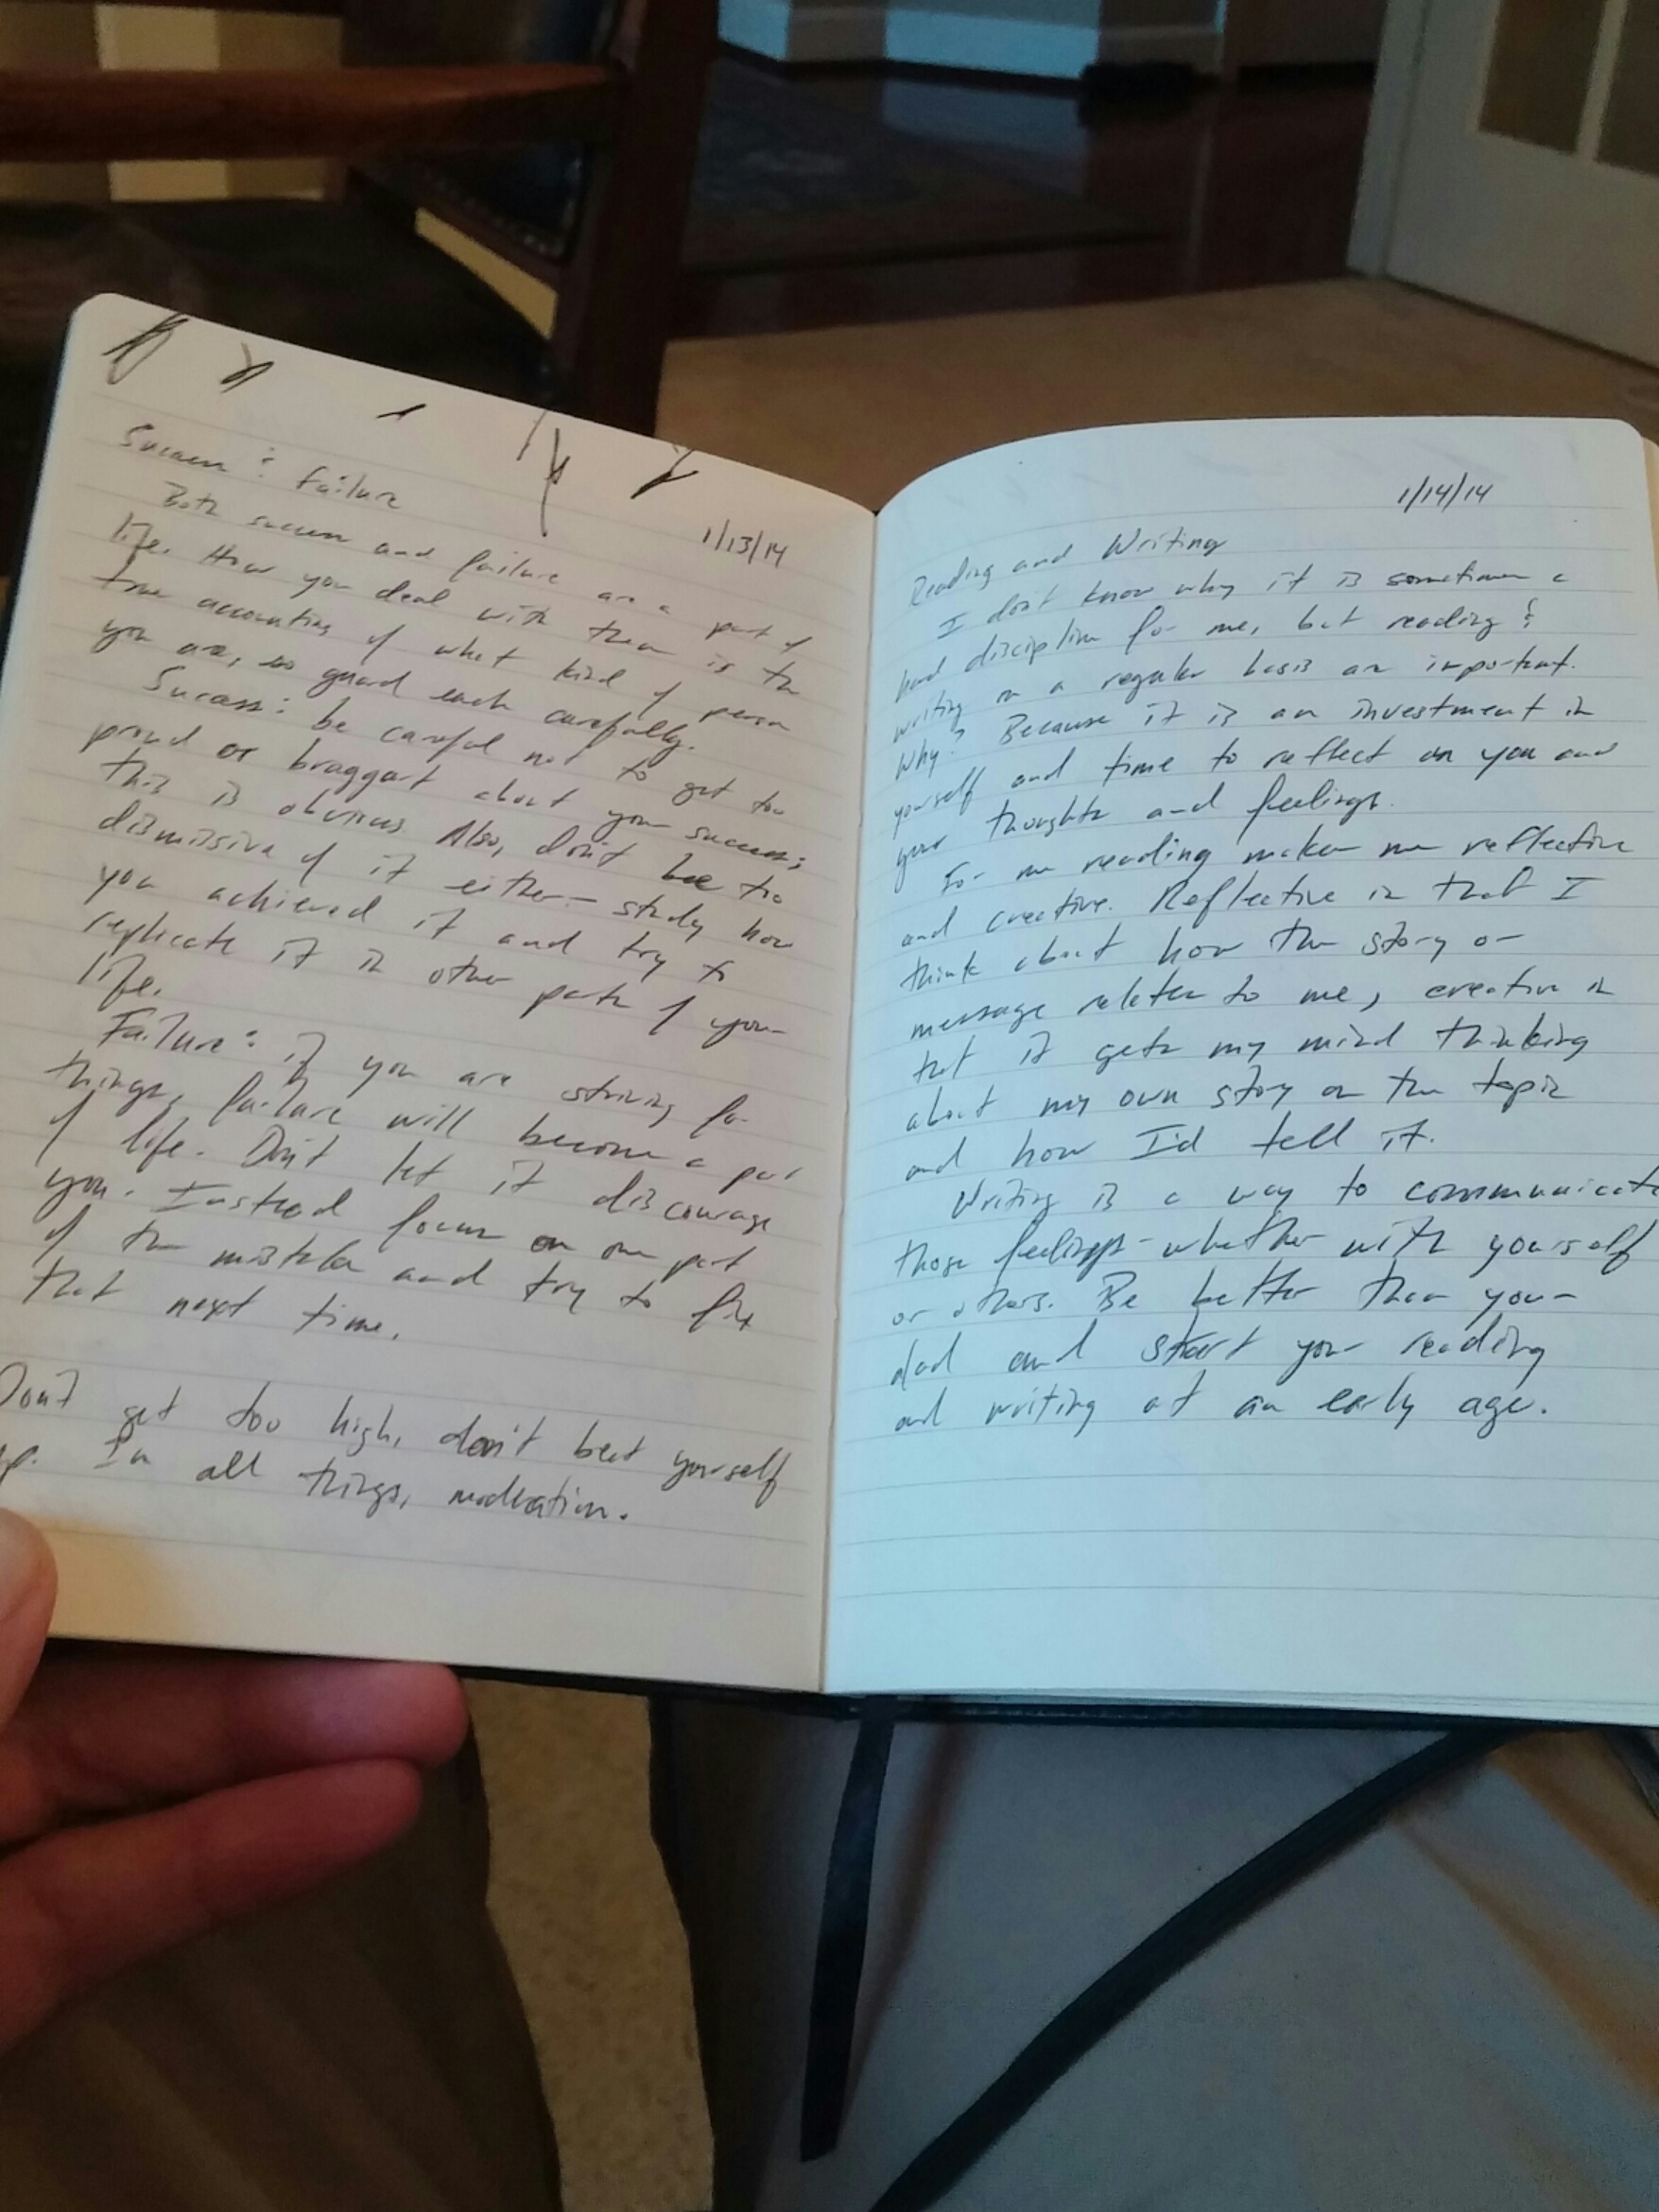 Success & Failure
1/13/14
Both success and failure are a part of
life. How you deal with them is the
true accounting of what kind of person
you are, so guard each carefully.
Success: be careful not to get too
proud or braggart about your success;
this is obvious. Also, don't be too
dismissive of it either - study how
you achieved it and try to
replicate it in other parts of your
life.
Failure: if you are striving for
things, failure will become a part
of life. Don't let it discourage
you. Instead focus on one part
of the mistake and try to fix
that next time.
Don't get too high, don't beat yourself
up. In all things, moderation.
1/14/14
Reading and Writing
I don't know why it is sometimes a
hard discipline for me, but reading &
writing on a regular basis are important.
Why? Because it is an investment in
yourself and time to reflect on you and
your thoughts and feelings.
For me reading makes me reflective
and creative. Reflective in that I
think about how the story or
message relates to me, creative in
that it gets my mind thinking
about my own story on the topic
and how I'd tell it.
Writing is a way to communicate
those feelings - whether with yourself
or others. Be better than your
dad and start your reading
and writing at an early age.